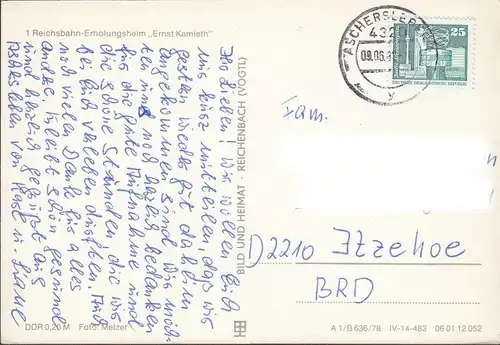 1 Reichsbahn-Erholungsheim „Ernst Kamieth"
Ihr Lieben! Wir wollen Euch
nur kurz mitteilen, dass wir
gestern wieder gut daheim
angekommen sind. Wir möch-
ten uns noch herzlich bedanken
für die gute Aufnahme und
die schöne Stunden die wir
bei Euch verleben durften. Auch
noch vielen Dank für alles
andere. Bleibt schön gesund
und herzlich gegrüßt aus
Aschersleben von
BILD UND HEIMAT · REICHENBACH (VOGTL)
ASCHERSLEBEN
4320
09.06.
y
25
DEUTSCHE DEMOKRATISCHE REPUBLIK
Fam.
D2210 Itzehoe
BRD
DDR 0,20 M Foto: Melzer
A 1/B 636/78 IV-14-483 06 01 12 052